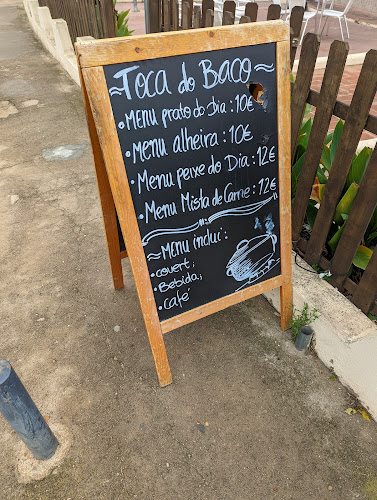 ≈Toca do Baco≈
•Menu prato do dia: 10€
•Menu alheira: 10€
•Menu peixe do Dia: 12€
•Menu Mista de Carne: 12€
≈Menu inclui:
•covert;
•Bebida;
•Café